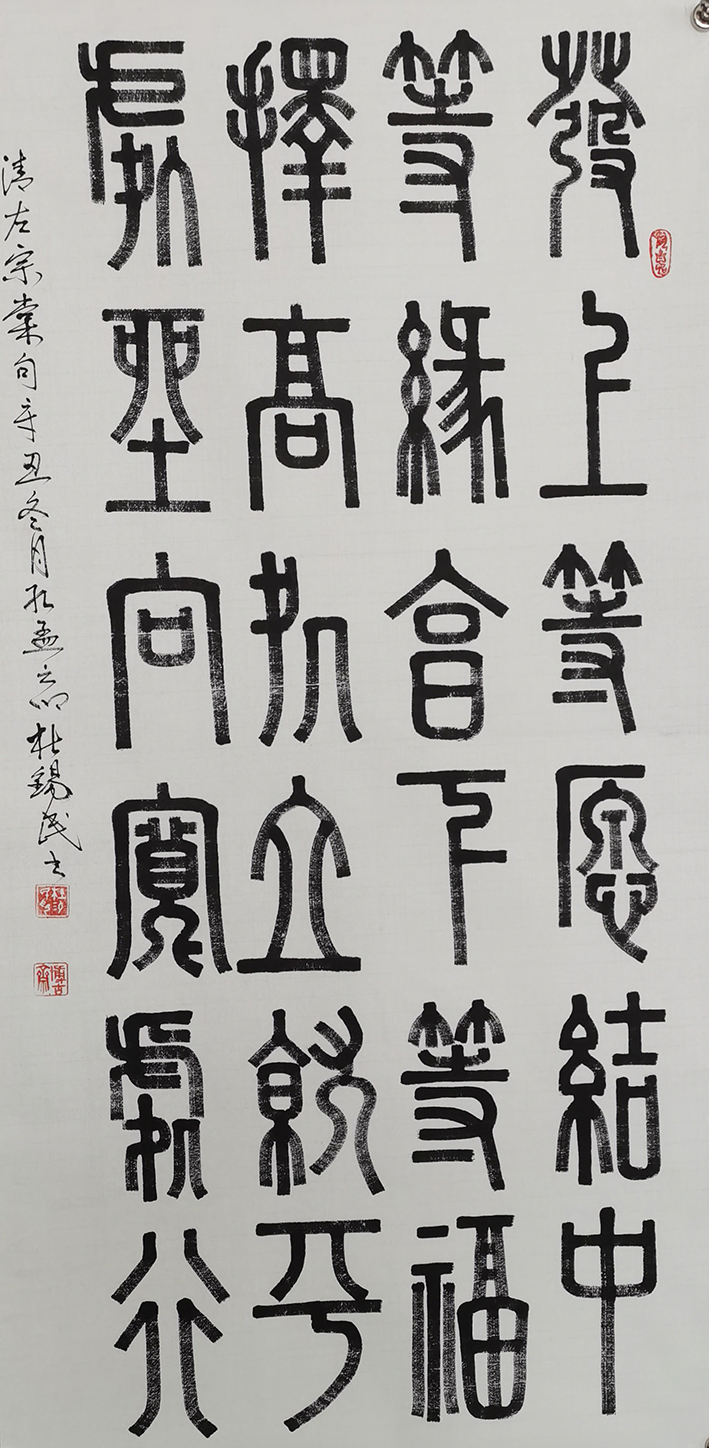 發上等愿結中
等緣享下等福
擇高処立就平
處坐向寬處行
清左宗棠句辛丑冬月孔孟之鄉杜錫民书